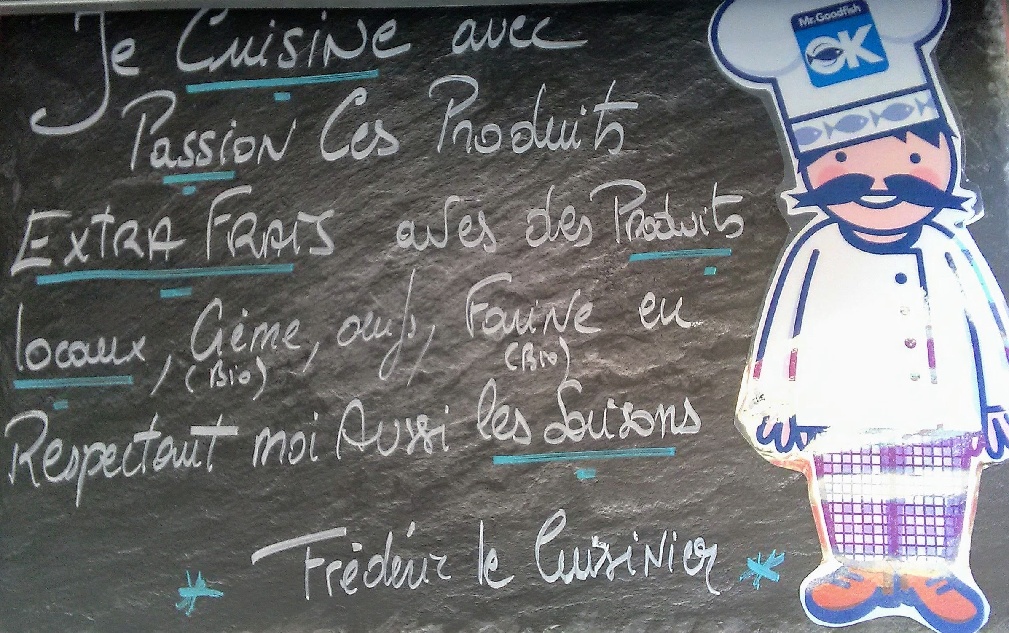 Je Cuisine avec
Passion Ces Produits
Extra Frais avec des Produits
locaux, Crème, oeufs, Farine en
(Bio) (Bio)
Respectant moi Aussi les Saisons
Frédéric le Cuisinier
Mr. Goodfish
OK